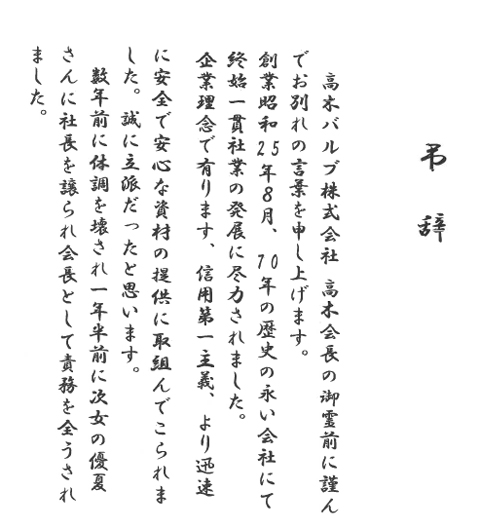 弔辞
高木バルブ株式会社　高木会長の御霊前に謹ん
でお別れの言葉を申し上げます。
創業昭和25年8月、70年の歴史の永い会社にて
終始一貫社業の発展に尽力されました。
企業理念で有ります、信用第一主義、より迅速
に安全で安心な資材の提供に取組んでこられま
した。誠に立派だったと思います。
数年前に体調を壊され一年半前に次女の優夏
さんに社長を譲られ会長として責務を全うされ
ました。